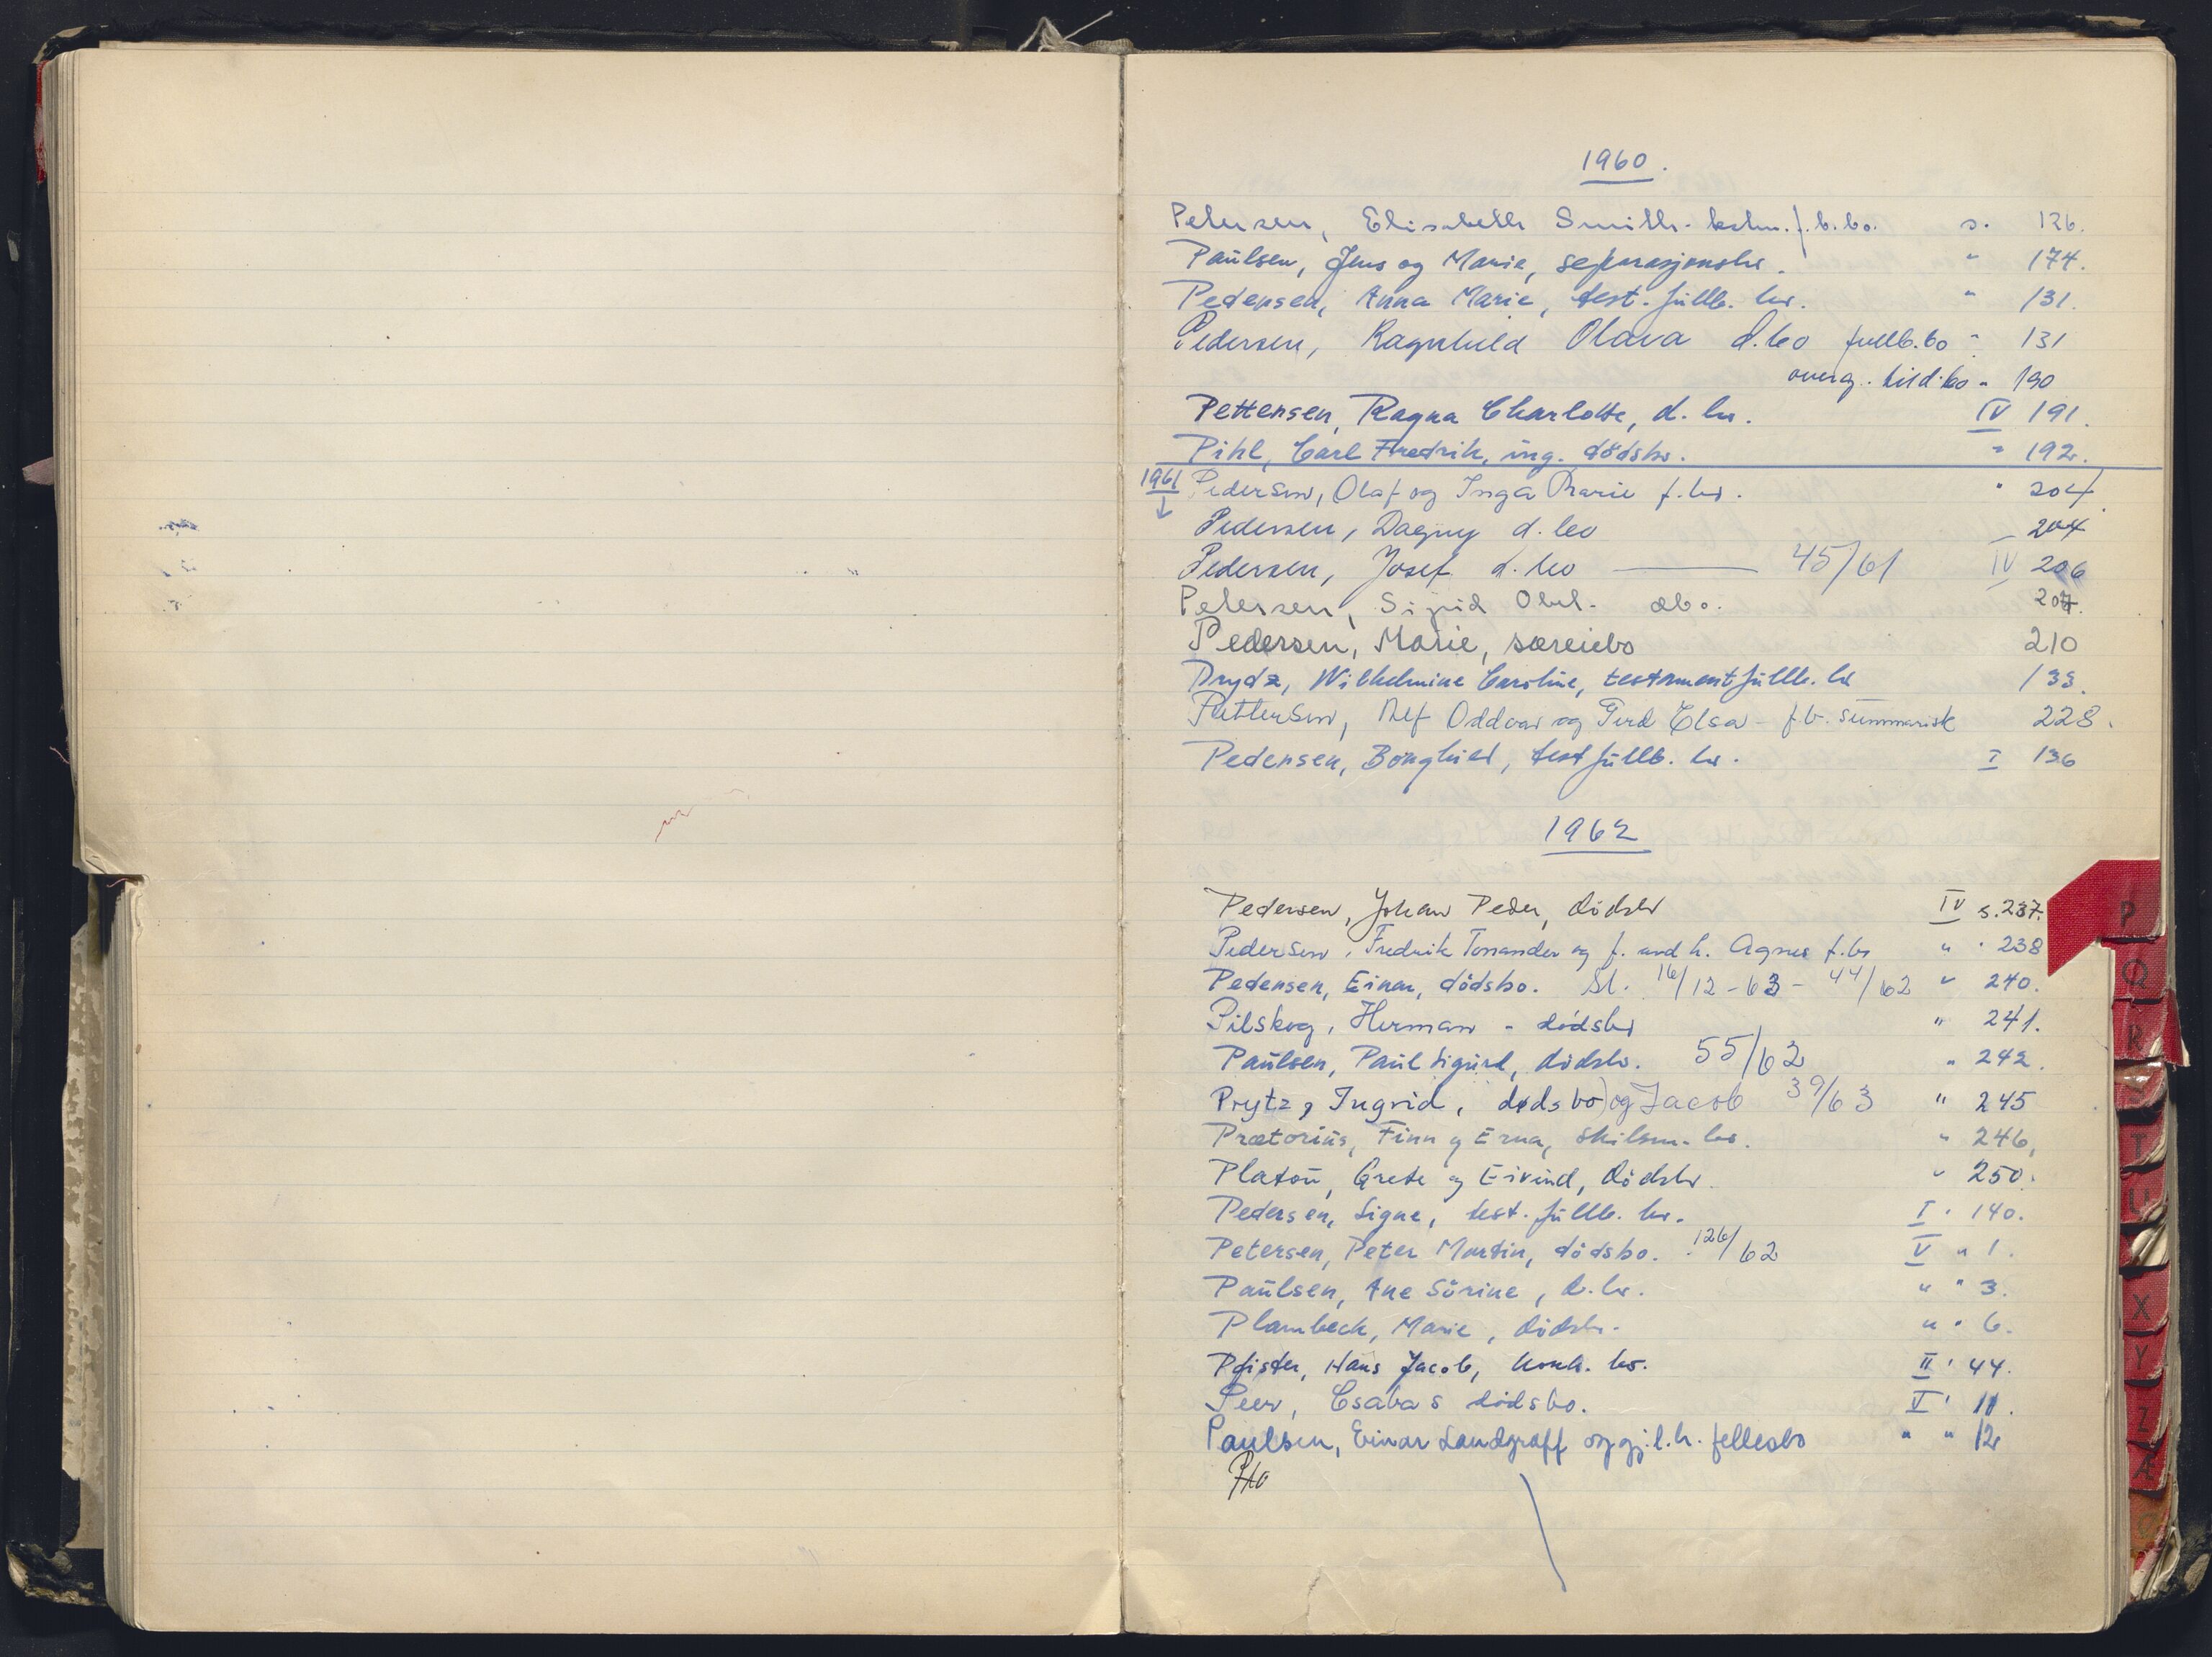 1960.
Petersen, Elisabeth Smith- f.b.bo. s. 126.
Paulsen, Jens og Marie, separasjonsbo. " 174.
Pedersen, Anna Marie, test. fullb. bo. " 131.
Pedersen, Ragnhild Olava d.bo fullb.bo " 131
overg. bo " 190
Pettersen, Ragna Charlotte, d. bo. IV 191.
Pihl, Carl Fredrik, ing. dødsbo. " 192.
1961 Pedersen, Olaf og Inga Marie f.bo. " 204.
Pedersen, Dagny d. bo 204
Pedersen, Josef d. bo 45/61 IV 206
Petersen, Sigrid dbo. 207.
Pedersen, Marie, særeiebo 210
Prydz, Wilhelmine Caroline, testament fullb. bo 133.
Pettersen, Alf Oddvar og Gerd Elsa - f.b. summarisk 228.
Pedersen, Borghild, test fullb. bo. I 136
1962
Pedersen, Johan Peder, dødsbo IV s. 237.
Pedersen, Fredrik og f. avd h. Agnes f.bo " " 238
Pedersen, Einar, dødsbo. Sl. 16/12-63 - 44/62 " 240.
Pilskog, Herman - dødsbo " 241.
Paulsen, Paul Sigurd, dødsbo. 55/62 " 242.
Prytz, Ingrid, dødsbo) og Jacob 39/63 " 245
Prætorius, Finn og Erna, skilsm. bo. " 246.
Platou, Grete og Eivind, dødsbo. " 250.
Pedersen, Signe, test. fullb. bo. I " 140.
Petersen, Peter Martin, dødsbo. 126/62 V " 1.
Paulsen, Ane Sørine, d. bo. " " 3.
Plambeck, Marie, dødsbo. " " 6.
Pfister, Hans Jacob, konk. bo. II " 44.
Peer, Csaba s dødsbo. V " 11.
Paulsen, Einar Landgraff og gj.l.h. fellesbo " " 12
P
Q
R
T
U
X
Y
Z
Æ